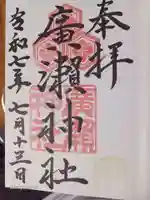 奉拝
廣瀬神社
令和七年七月十三日